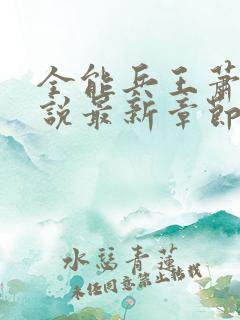 全能兵王萧
说最新章节
水慧青莲
未经同意禁止转载